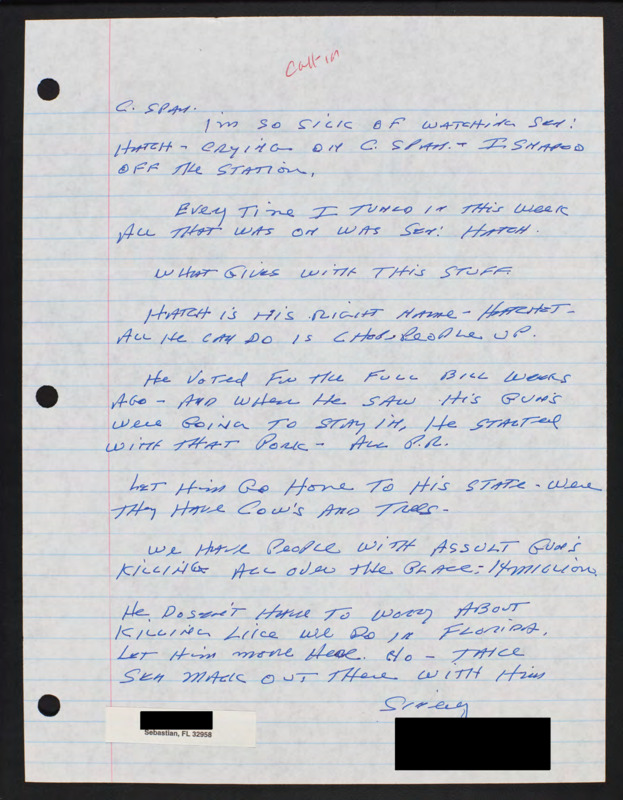 Call-in
C. SPAN.
I'm SO SICK OF WATCHING SEN:
HATCH - CRYING ON C. SPAN. - I SNAPED
OFF THE STATION.
EVERY TIME I TUNED IN THIS WEEK
ALL THAT WAS ON WAS SEN: HATCH.
WHAT GIVES WITH THIS STUFF.
HATCH IS HIS RIGHT NAME - HATCHET -
ALL HE CAN DO IS CHOP PEOPLE UP.
HE VOTED FOR THE FULL BILL WEEKS
AGO - AND WHEN HE SAW HIS GUN'S
WERE GOING TO STAY IN, HE STARTED
WITH THAT PORK - ALL P.R.
LET HIM GO HOME TO HIS STATE - WERE
THEY HAVE COW'S AND TREES -
WE HAVE PEOPLE WITH ASSULT GUN'S
KILLING ALL OVER THE PLACE - 14 MILLION.
HE DOESN'T HAVE TO WORRY ABOUT
KILLING LIKE WE DO IN FLORIDA.
LET HIM MOVE HERE. NO - TAKE
SEN MACK OUT THERE WITH HIM
Sebastian, FL 32958